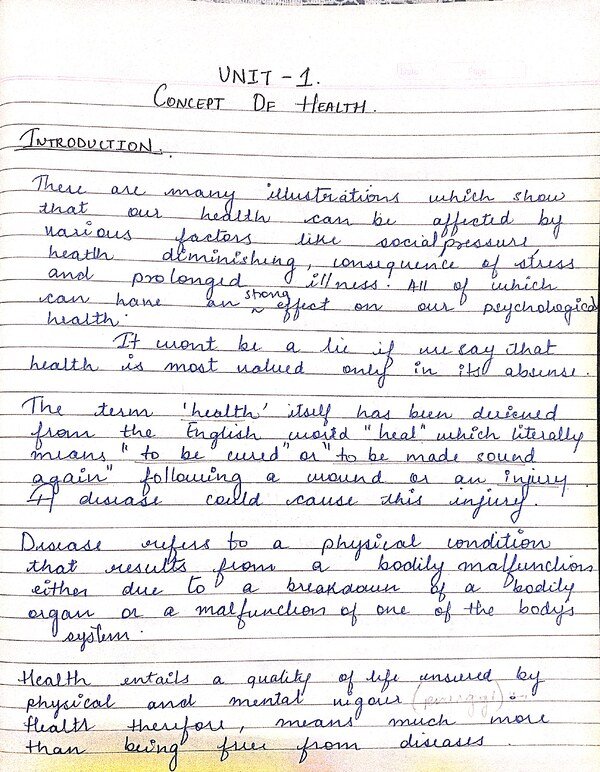 UNIT - 1.
CONCEPT OF HEALTH.
INTRODUCTION.
There are many illustrations which show
that our health can be affected by
various factors like social pressure,
health diminishing, consequence of stress
and prolonged illness. All of which
strong
can have an ^ effect on our psychological
health.
It wont be a lie if we say that
health is most valued only in its absense.
The term 'health' itself has been derieved
from the English world "heal" which literally
means "to be cured" or "to be made sound
again" following a wound or an injury.
A disease could cause this injury.
Disease refers to a physical condition
that results from a bodily malfunction
either due to a breakdown of a bodily
organ or a malfunction of one of the body's
system.
Health entails a quality of life ensured by
physical and mental vigour (energy)
Health therefore, means much more
than being free from diseases.